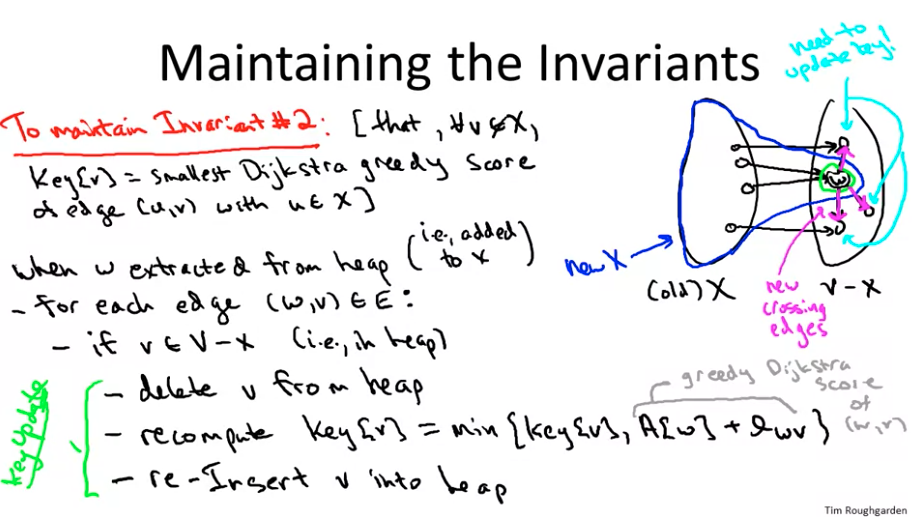 Maintaining the Invariants
need to
update key!
To maintain Invariant #2: [that, ∀v∉X,
key[v] = smallest Dijkstra greedy score
of edge (u,v) with u∈X]
when w extracted from heap (i.e., added
to X)
- for each edge (w,v) ∈ E:
- if v ∈ V-X (i.e., in heap)
- delete v from heap
- recompute key[v] = min{key[v], A[w] + lwv}
- re-Insert v into heap
key update
greedy Dijkstra
score
of
(w,v)
w
new X
(old) X
V-X
new
crossing
edges
Tim Roughgarden